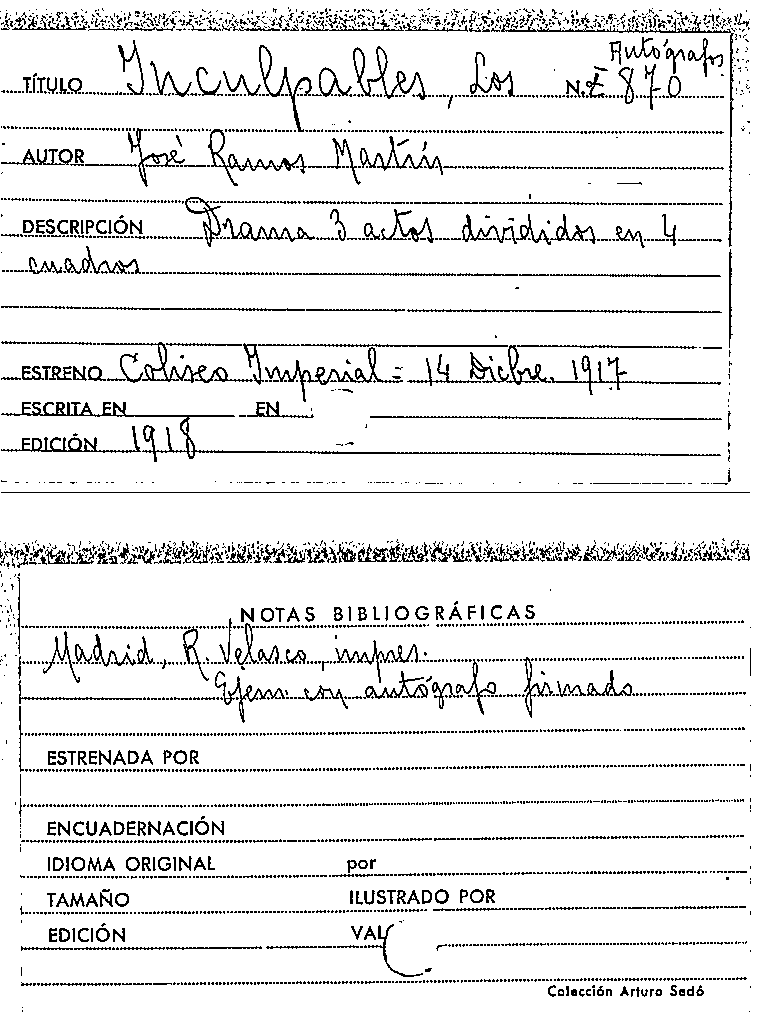 Autógrafos
TÍTULO Inculpables, Los N.º 870
AUTOR José Ramos Martín
DESCRIPCIÓN Drama 3 actos divididos en 4
cuadros
ESTRENO Coliseo Imperial = 14 Dicbre. 1917
ESCRITA EN EN
EDICIÓN 1918
NOTAS BIBLIOGRÁFICAS
Madrid, R. Velasco, impres.
Ejem. con autógrafo firmado
ESTRENADA POR
ENCUADERNACIÓN
IDIOMA ORIGINAL por
TAMAÑO ILUSTRADO POR
EDICIÓN VAL
Colección Arturo Sedó